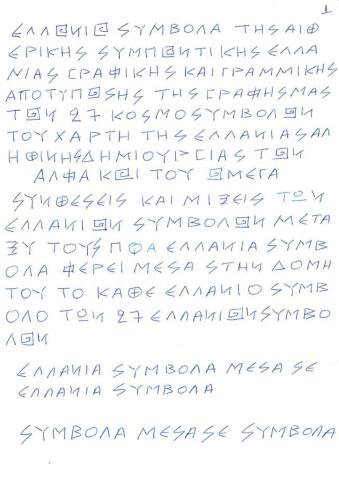 1
ΕΛΛΑΝΙΑ SΥΜΒΟΛΑ ΤΗS ΑΙΘ
ΕΡΙΚΗS SΥΜΠΑΝΤΙΚΗS ΕΛΛΑ
ΝΙΑS ΓΡΑΦΙΚΗS ΚΑΙ ΓΡΑΜΜΙΚΗS
ΑΠΟΤΥΠΩSΗS ΤΗS ΓΡΑΦΗSΜΑS
ΤΩΝ 27 ΚΟSΜΟSΥΜΒΟΛΩΝ
ΤΟΥ ΧΑΡΤΗ ΤΗS ΕΛΛΑΝΙΑSΑΛ
ΗΘΙΝΗSΔΗΜΙΟΥΡΓΙΑS ΤΩΝ
ΑΛΦΑ ΚΑΙ ΤΟΥ ΩΜΕΓΑ
SΥΝΘΕSΕΙS ΚΑΙ ΜΙΞΕΙS ΤΩΝ
ΕΛΛΑΝΙΩΝ SΥΜΒΟΛΩΝ ΜΕΤΑ
ΞΥ ΤΟΥS ΕΛΛΑΝΙΑ SΥΜΒ
ΟΛΑ ΦΕΡΕΙ ΜΕSΑ SΤΗΝ ΔΟΜΗ
ΤΟΥ ΤΟ ΚΑΘΕ ΕΛΛΑΝΙΟ SΥΜΒ
ΟΛΟ ΤΩΝ 27 ΕΛΛΑΝΙΩΝ SΥΜΒΟ
ΛΩΝ
ΕΛΛΑΝΙΑ SΥΜΒΟΛΑ ΜΕSΑ SΕ
ΕΛΛΑΝΙΑ SΥΜΒΟΛΑ
SΥΜΒΟΛΑ ΜΕSΑ SΕ SΥΜΒΟΛΑ